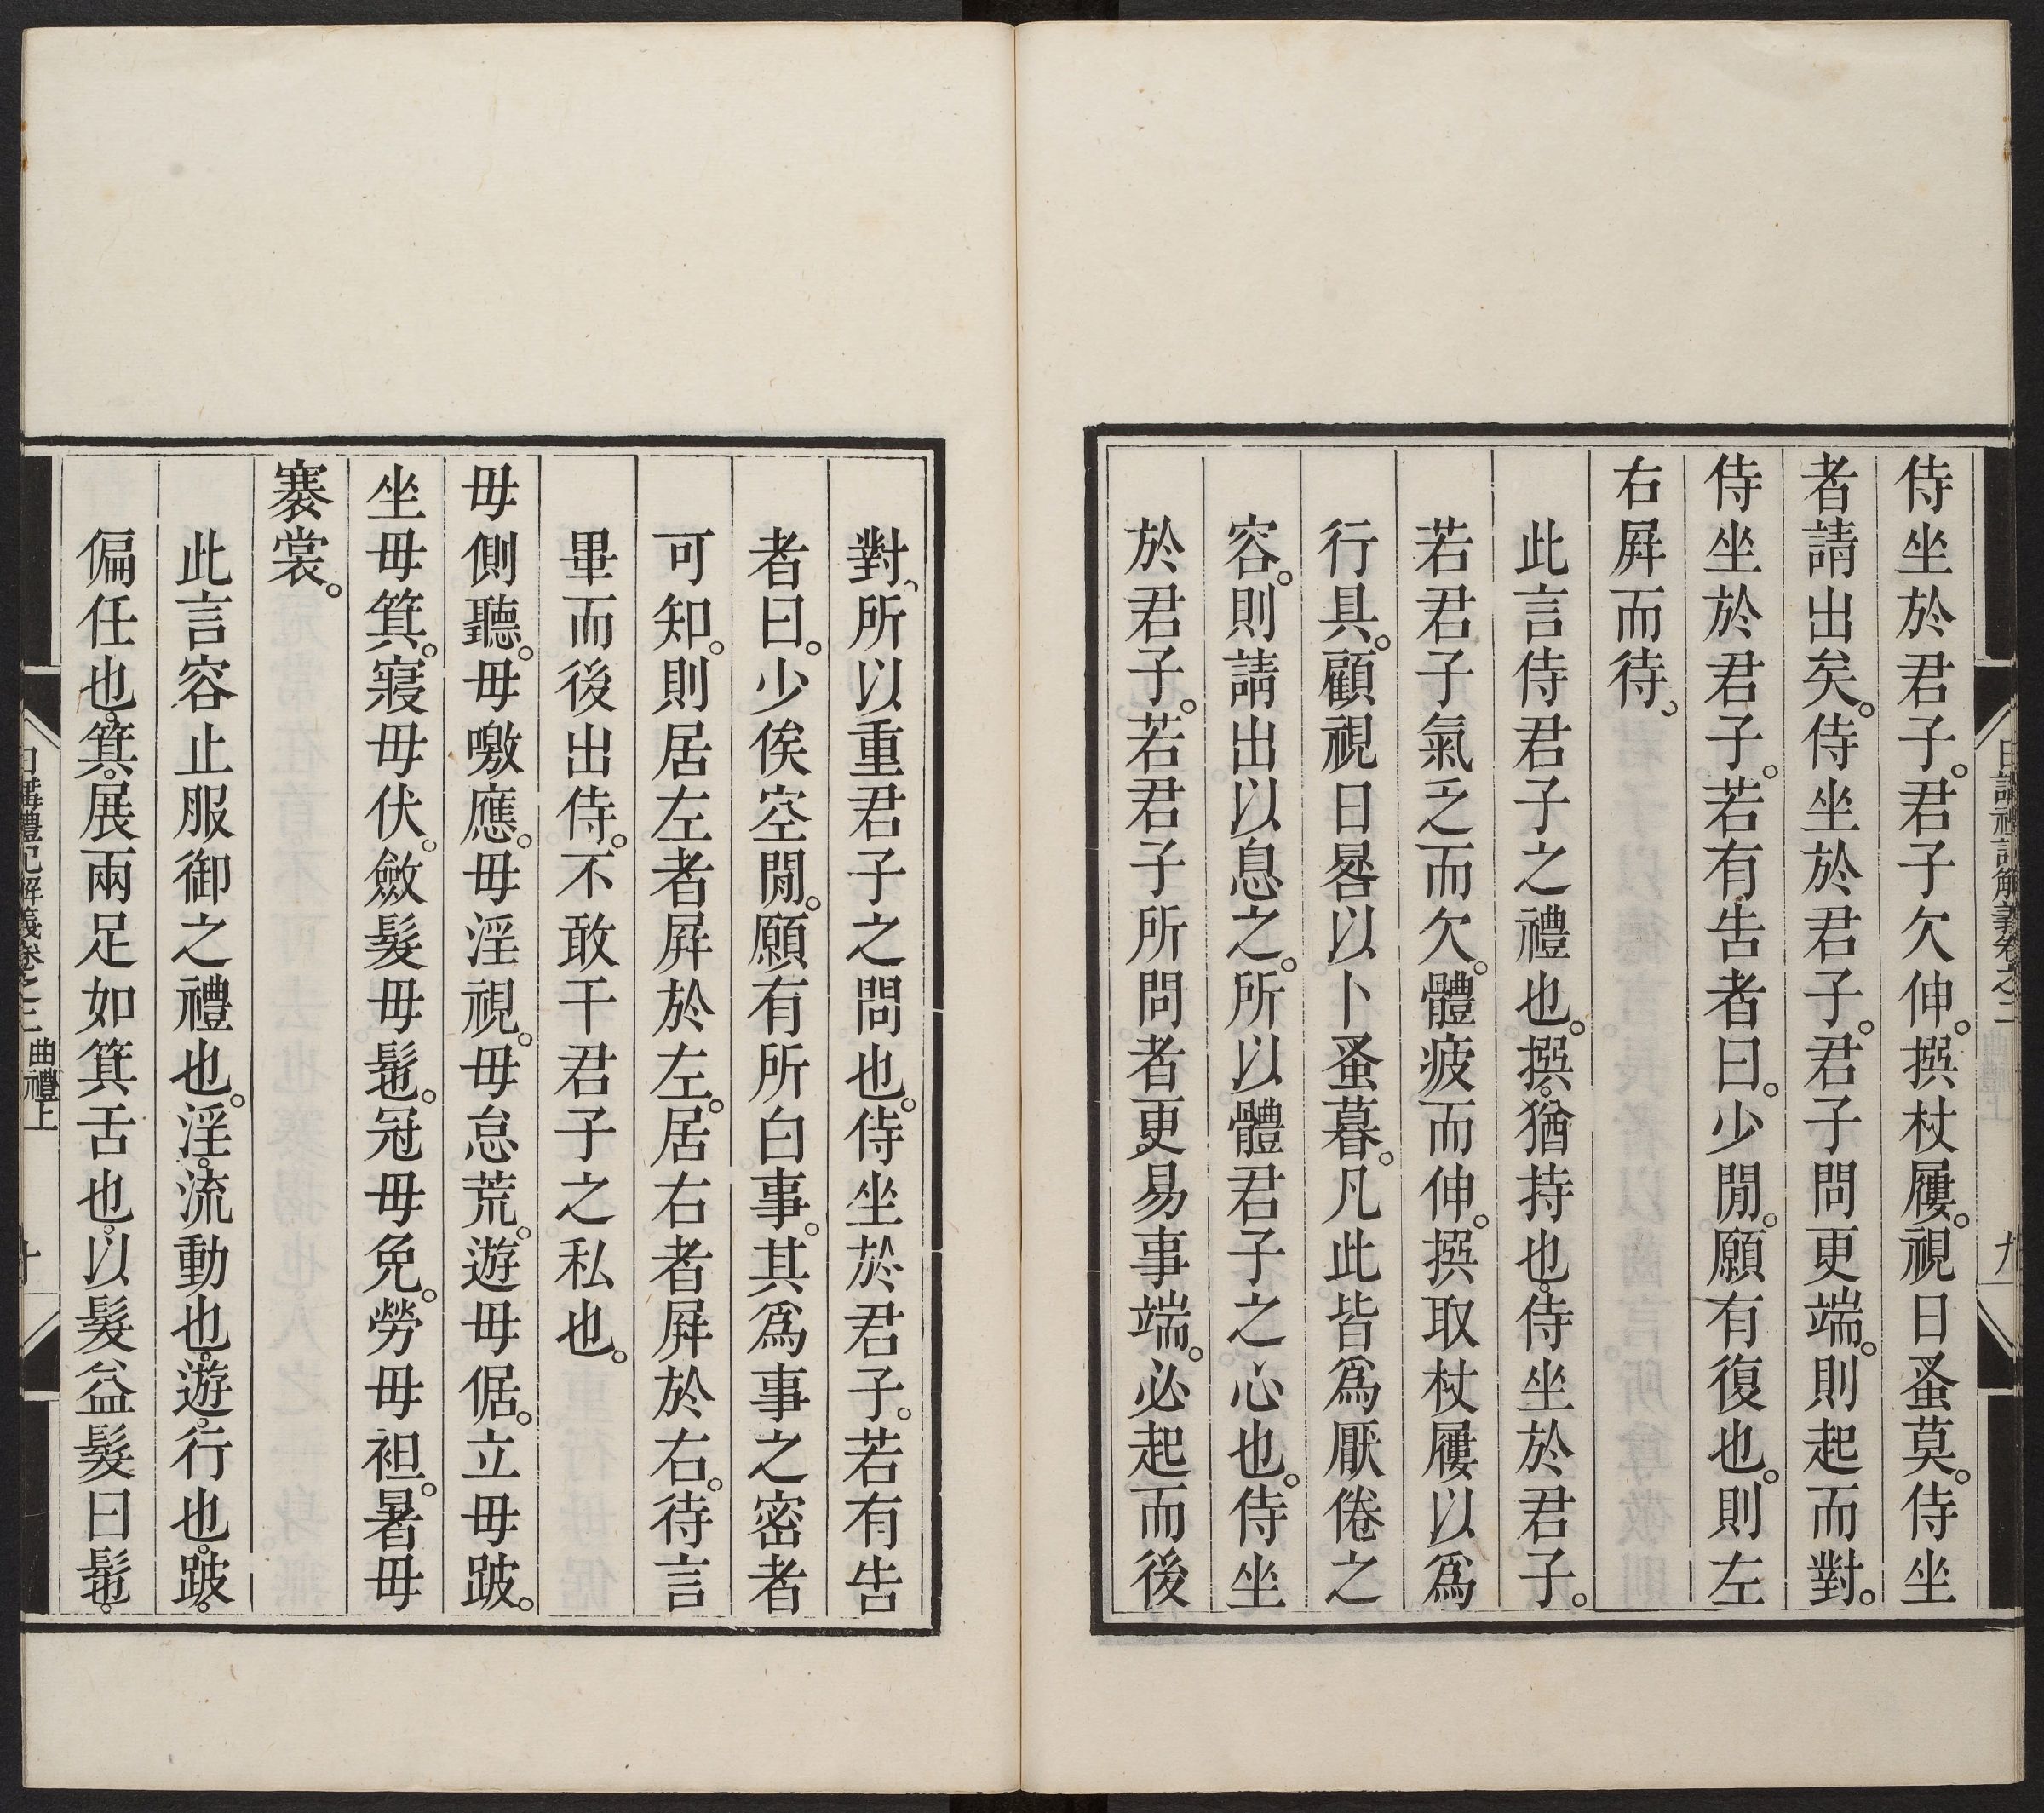 侍坐於君子。君子欠伸。撰杖屨。視日蚤莫。侍坐
者請出矣。侍坐於君子。君子問更端。則起而對。
侍坐於君子。若有告者曰。少閒。願有復也。則左
右屏而待。
此言侍君子之禮也。撰。猶持也。侍坐於君子。
若君子氣乏而欠。體疲而伸。撰取杖屨以爲
行具。顧視日晷以卜蚤暮。凡此皆爲厭倦之
容。則請出以息之。所以體君子之心也。侍坐
於君子。若君子所問者更易事端。必起而後
日講禮記解義卷之三 曲禮上 九
對、所以重君子之問也。侍坐於君子。若有告
者曰。少俟空閒。願有所白事。其爲事之密者
可知。則居左者屏於左。居右者屏於右。待言
畢而後出侍。不敢干君子之私也。
毋側聽。毋噭應。毋淫視。毋怠荒。遊毋倨。立毋跛。
坐毋箕。寢毋伏。斂髮毋髢。冠毋免。勞毋袒。暑毋
褰裳。
此言容止服御之禮也。淫。流動也。遊。行也。跛。
偏任也。箕。展兩足如箕舌也。以髮益髮曰髢。
日講禮記解義卷之三 曲禮上 十